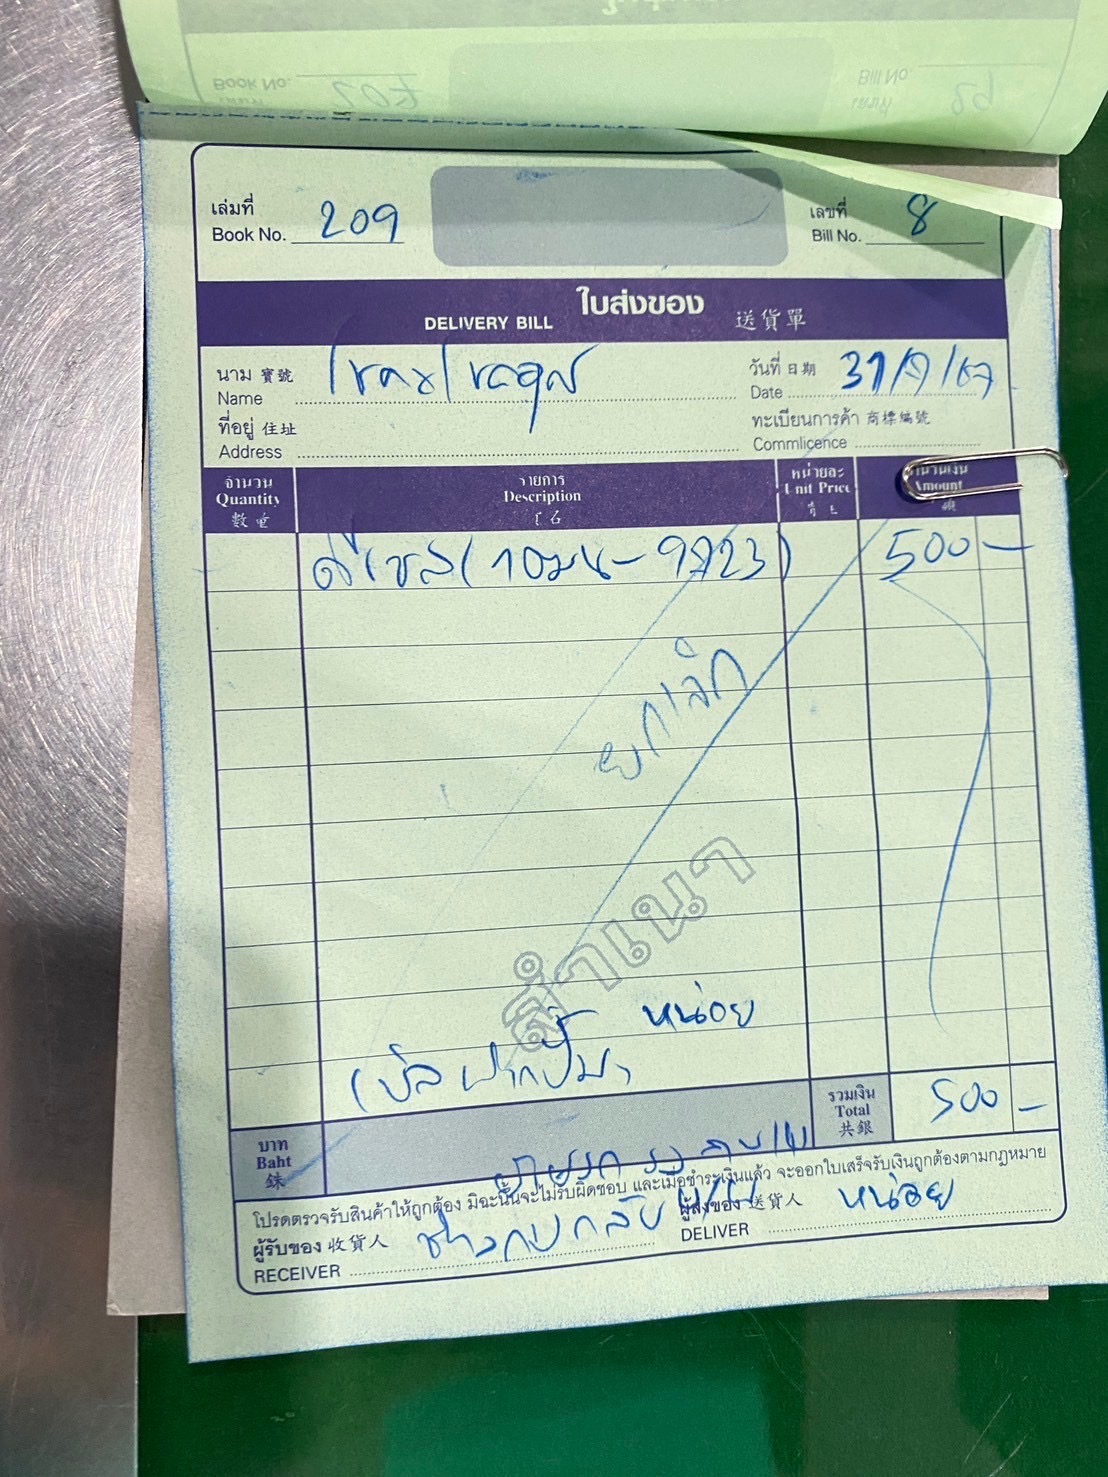 Book No.
Bill No.
เล่มที่ เลขที่
Book No. 209 Bill No. 8
ใบส่งของ
DELIVERY BILL 送貨單
นาม 寶號 วันที่ 日期
Name Date 31/
ที่อยู่ 住址 ทะเบียนการค้า 商標編號
Address Commlicence
จำนวน รายการ หน่วยละ จำนวนเงิน
Quantity Description Unit Price Amount
ดีเซล (10มน-9723) 500 –
ยกเลิก
สำเนา
หน่อย
(บิลฝากปั๊ม)
บาท รวมเงิน 500 –
Baht Total
銖 共銀
โปรดตรวจรับสินค้าให้ถูกต้อง มิฉะนั้นจะไม่รับผิดชอบ และเมื่อชำระเงินแล้ว จะออกใบเสร็จรับเงินถูกต้องตามกฎหมาย
ผู้รับของ 收貨人 ผู้ส่งของ 送貨人 หน่อย
RECEIVER DELIVER